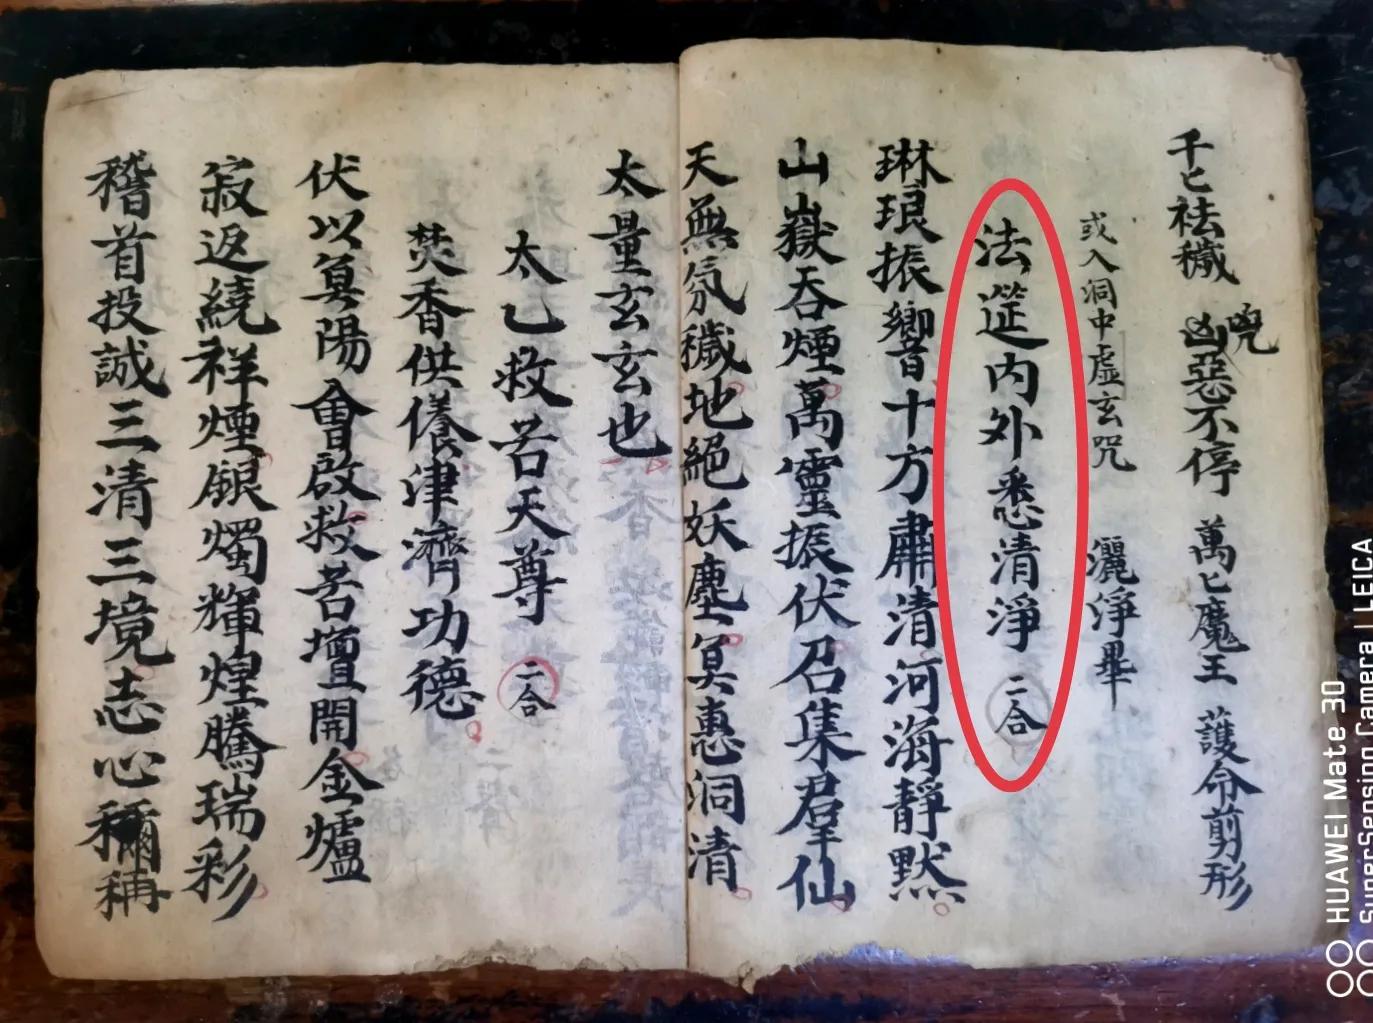 千匕祛穢 兇 凶惡不停 萬匕魔王 護命剪形
或入洞中虛玄咒 灑淨畢
法筵內外悉清淨 二合
琳琅振響十方肅清河海靜默
山嶽吞煙萬靈振伏召集群仙
天無氛穢地絕妖塵冥惠洞清
太量玄玄也
太乙救苦天尊 二合
焚香供養津濟功德
伏以冥陽會啟救苦壇開金爐
寂返繞祥煙銀燭輝煌騰瑞彩
稽首投誠三清三境志心稱
HUAWEI Mate 30
SuperSensing Camera | LEICA